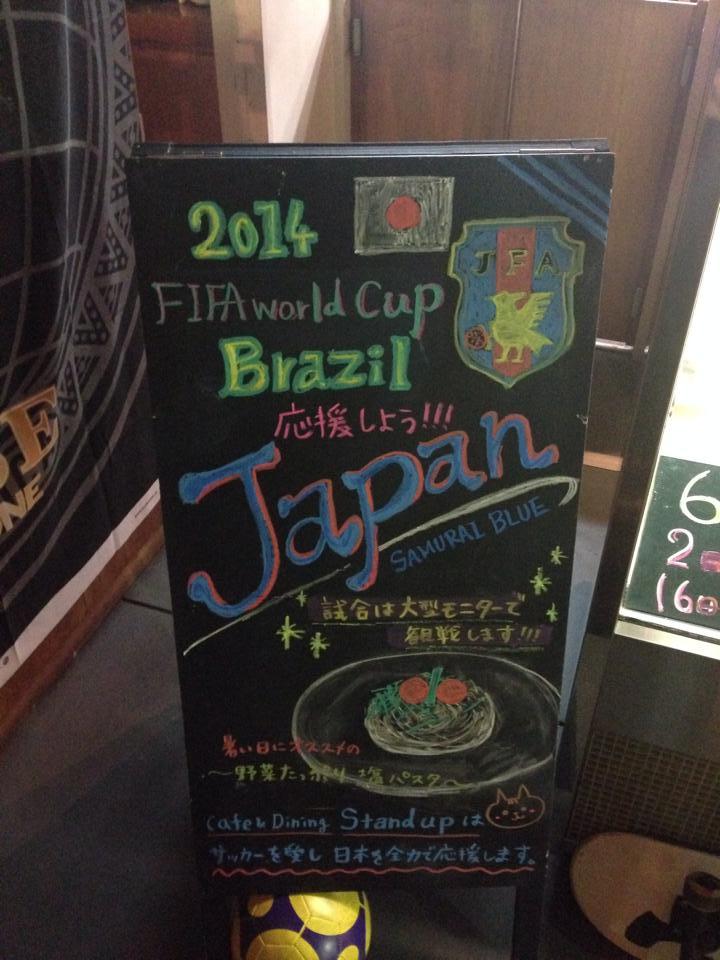 2014
FIFA World Cup
JFA
Brazil
応援しよう!!!
Japan
SAMURAI BLUE
試合は大型モニターで
観戦します!!!
暑い日にオススメの
〜野菜たっぷり 塩パスタ〜
Cafe & Dining Stand up は
サッカーを愛し 日本を全力で応援します。
E
ONE
6
2
16